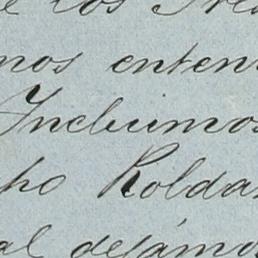 e los Tres
mos enten
Incluimos
ho Roldan
al dejámos